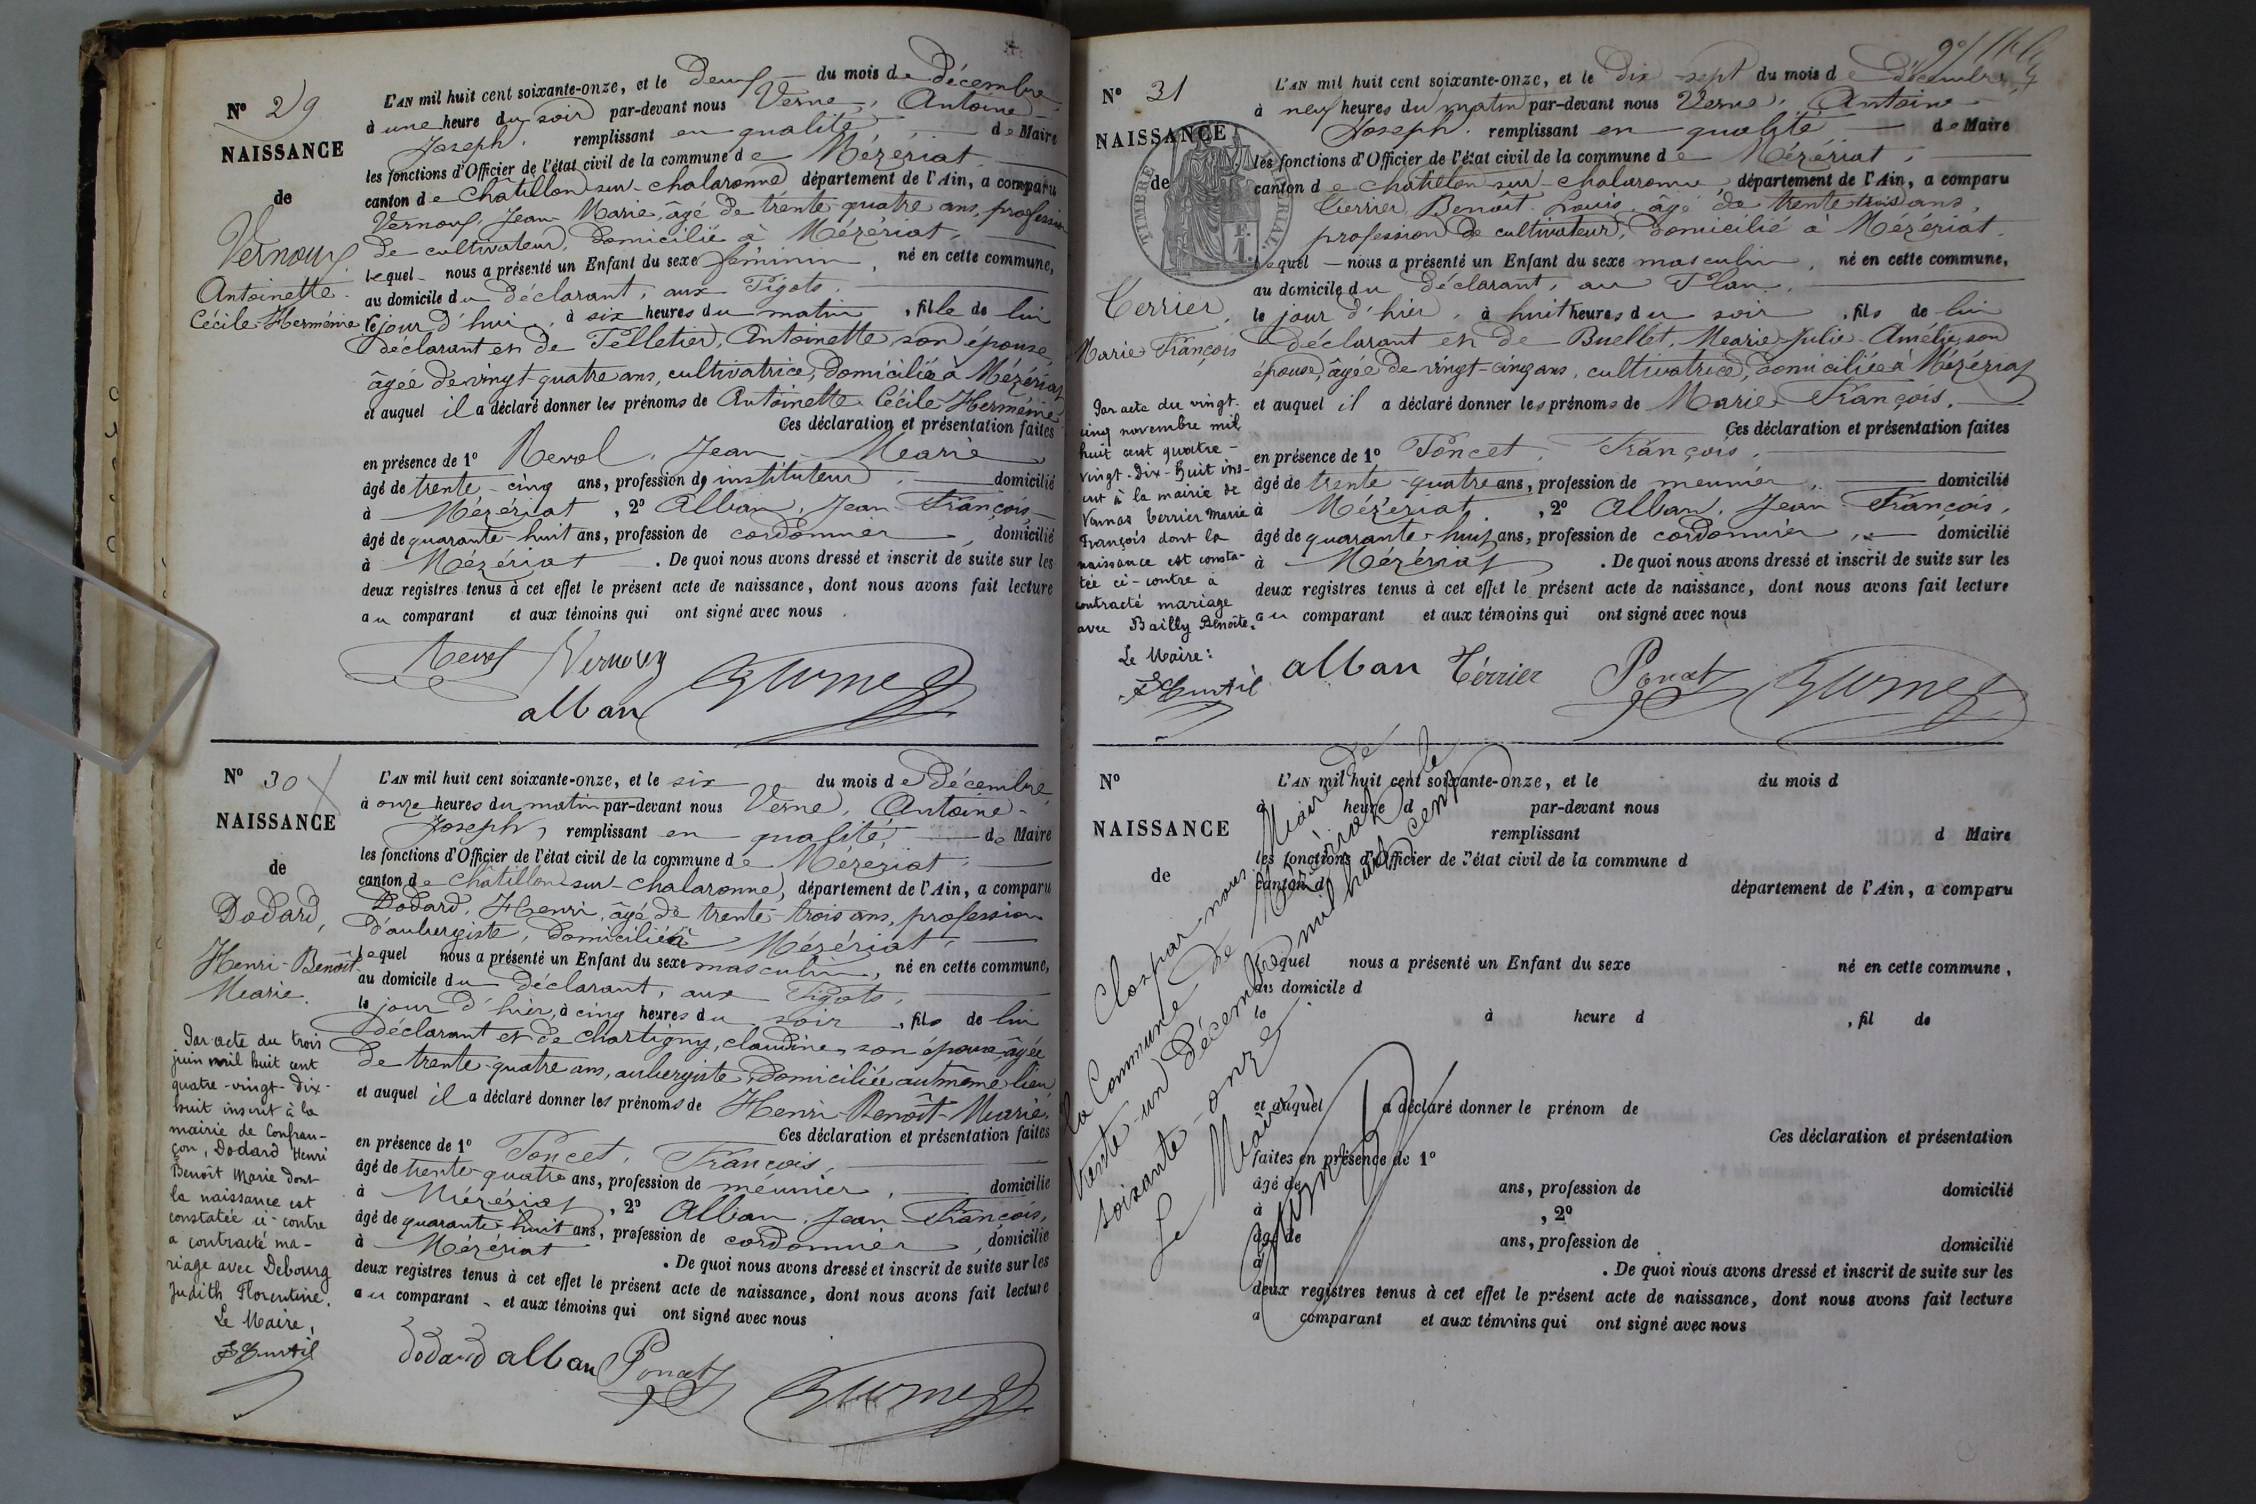 N° 29
NAISSANCE
de
Vernoux
Antoinette
Cécile Herménie
L'AN mil huit cent soixante-onze, et le deux du mois de Décembre
à une heure du soir par-devant nous Verne, Antoine
Joseph, remplissant en qualité de Maire
les fonctions d'Officier de l'état civil de la commune de Mézériat
canton de Châtillon-sur-Chalaronne département de l'Ain, a comparu
Vernoux, Jean Marie, âgé de trente-quatre ans, profession
de cultivateur, domicilié à Mézériat,
lequel nous a présenté un Enfant du sexe féminin, né en cette commune,
au domicile du déclarant, aux Pigots,
le jour d'hui, à six heures du matin, fille de lui
déclarant et de Pelletier, Antoinette son épouse,
âgée de vingt-quatre ans, cultivatrice, domiciliée à Mézériat
et auquel il a déclaré donner les prénoms de Antoinette Cécile Herménie
Ces déclaration et présentation faites
en présence de 1° Revol, Jean Marie
âgé de trente-cinq ans, profession d'instituteur, domicilié
à Mézériat, 2° Alban, Jean François
âgé de quarante-huit ans, profession de cordonnier, domicilié
à Mézériat. De quoi nous avons dressé et inscrit de suite sur les
deux registres tenus à cet effet le présent acte de naissance, dont nous avons fait lecture
au comparant et aux témoins qui ont signé avec nous.
Revol Vernoux
alban
N° 30
NAISSANCE
de
Dodard,
Henri-Benoît
Marie.
Par acte du trois
juin mil huit cent
quatre-vingt-dix-
huit inscrit à la
mairie de Confran-
çon, Dodard Henri
Benoît Marie dont
la naissance est
constatée ci-contre
a contracté ma-
riage avec Debourg
Judith Florentine.
Le Maire,
L'AN mil huit cent soixante-onze, et le six du mois de Décembre
à onze heures du matin par-devant nous Verne, Antoine-
Joseph, remplissant en qualité, de Maire
les fonctions d'Officier de l'état civil de la commune de Mézériat,
canton de Châtillon-sur-Chalaronne, département de l'Ain, a comparu
Dodard, Henri, âgé de trente-trois ans, profession
d'aubergiste, domicilié à Mézériat,
lequel nous a présenté un Enfant du sexe masculin, né en cette commune,
au domicile du déclarant, aux Pigots,
le jour d'hier, à cinq heures du soir, fils de lui
déclarant et de Chartigny, Claudine, son épouse, âgée
de trente-quatre ans, aubergiste, domiciliée au même lieu
et auquel il a déclaré donner les prénoms de Henri-Benoît-Marie.
Ces déclaration et présentation faites
en présence de 1° Poncet, François,
âgé de trente-quatre ans, profession de meunier, domicilié
à Mézériat, 2° Alban, Jean François,
âgé de quarante-huit ans, profession de cordonnier, domicilié
à Mézériat. De quoi nous avons dressé et inscrit de suite sur les
deux registres tenus à cet effet le présent acte de naissance, dont nous avons fait lecture
au comparant et aux témoins qui ont signé avec nous
Dodard alban Poncet
N° 31
NAISSANCE
de
Terrier,
Marie François
Par acte du vingt-
cinq novembre mil
huit cent quatre-
vingt-dix-huit ins-
crit à la mairie de
Vonnas Terrier Marie
François dont la
naissance est consta-
tée ci-contre a
contracté mariage
avec Bailly Benoîte.
Le Maire:
TIMBRE
L'AN mil huit cent soixante-onze, et le dix-sept du mois de Décembre
à neuf heures du matin par-devant nous Verne, Antoine
Joseph, remplissant en qualité de Maire
les fonctions d'Officier de l'état civil de la commune de Mézériat,
canton de Châtillon-sur-Chalaronne, département de l'Ain, a comparu
Terrier, Benoît Louis, âgé de trente trois ans,
profession de cultivateur, domicilié à Mézériat,
lequel nous a présenté un Enfant du sexe masculin, né en cette commune,
au domicile du déclarant, au Plan,
le jour d'hier, à huit heures du soir, fils de lui
déclarant et de Buellet, Marie-Julie-Amélie, son
épouse, âgée de vingt-cinq ans, cultivatrice, domiciliée à Mézériat
et auquel il a déclaré donner les prénoms de Marie François.
Ces déclaration et présentation faites
en présence de 1° Poncet, François,
âgé de trente-quatre ans, profession de meunier, domicilié
à Mézériat, 2° Alban, Jean François,
âgé de quarante-huit ans, profession de cordonnier, domicilié
à Mézériat. De quoi nous avons dressé et inscrit de suite sur les
deux registres tenus à cet effet le présent acte de naissance, dont nous avons fait lecture
au comparant et aux témoins qui ont signé avec nous
alban Térrier Poncet
N°
NAISSANCE
de
L'AN mil huit cent soixante-onze, et le du mois d
à heure d par-devant nous
remplissant d Maire
les fonctions d'Officier de l'état civil de la commune d
canton d
département de l'Ain, a comparu
lequel nous a présenté un Enfant du sexe né en cette commune,
au domicile d
le à heure d , fil de
et auquel a déclaré donner le prénom de
Ces déclaration et présentation
faites en présence de 1°
âgé de ans, profession de domicilié
à , 2°
âgé de ans, profession de domicilié
à . De quoi nous avons dressé et inscrit de suite sur les
deux registres tenus à cet effet le présent acte de naissance, dont nous avons fait lecture
a comparant et aux témoins qui ont signé avec nous
Clos par nous Maire de
la Commune de Mézériat le
trente-un Décembre mil huit cent
soixante-onze.
Le Maire